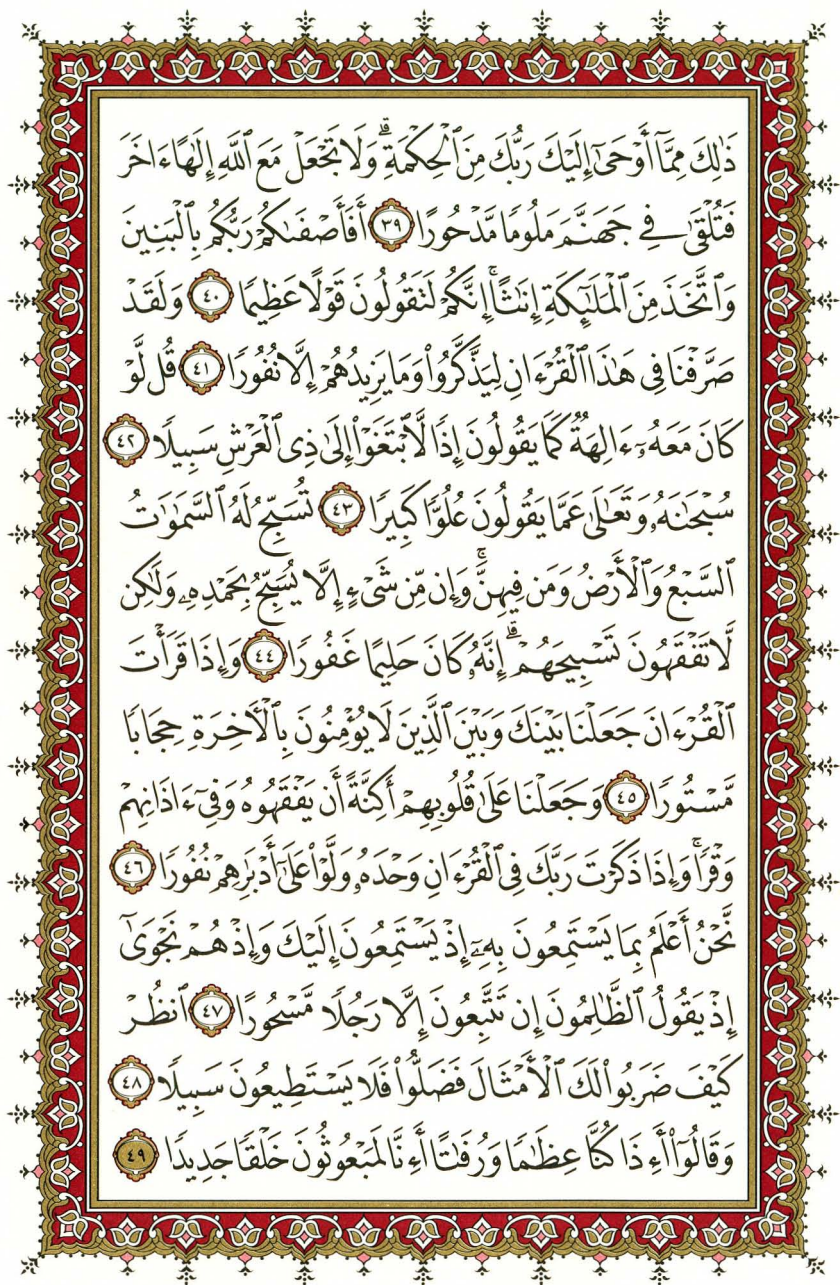 ذَٰلِكَ مِمَّآ أَوْحَىٰٓ إِلَيْكَ رَبُّكَ مِنَ ٱلْحِكْمَةِ ۗ وَلَا تَجْعَلْ مَعَ ٱللَّهِ إِلَٰهًا ءَاخَرَ
فَتُلْقَىٰ فِى جَهَنَّمَ مَلُومًا مَّدْحُورًا ٣٩ أَفَأَصْفَىٰكُمْ رَبُّكُم بِٱلْبَنِينَ
وَٱتَّخَذَ مِنَ ٱلْمَلَٰٓئِكَةِ إِنَٰثًا ۚ إِنَّكُمْ لَتَقُولُونَ قَوْلًا عَظِيمًا ٤٠ وَلَقَدْ
صَرَّفْنَا فِى هَٰذَا ٱلْقُرْءَانِ لِيَذَّكَّرُوا۟ وَمَا يَزِيدُهُمْ إِلَّا نُفُورًا ٤١ قُل لَّوْ
كَانَ مَعَهُۥٓ ءَالِهَةٌ كَمَا يَقُولُونَ إِذًا لَّٱبْتَغَوْا۟ إِلَىٰ ذِى ٱلْعَرْشِ سَبِيلًا ٤٢
سُبْحَٰنَهُۥ وَتَعَٰلَىٰ عَمَّا يَقُولُونَ عُلُوًّا كَبِيرًا ٤٣ تُسَبِّحُ لَهُ ٱلسَّمَٰوَٰتُ
ٱلسَّبْعُ وَٱلْأَرْضُ وَمَن فِيهِنَّ ۚ وَإِن مِّن شَىْءٍ إِلَّا يُسَبِّحُ بِحَمْدِهِۦ وَلَٰكِن
لَّا تَفْقَهُونَ تَسْبِيحَهُمْ ۗ إِنَّهُۥ كَانَ حَلِيمًا غَفُورًا ٤٤ وَإِذَا قَرَأْتَ
ٱلْقُرْءَانَ جَعَلْنَا بَيْنَكَ وَبَيْنَ ٱلَّذِينَ لَا يُؤْمِنُونَ بِٱلْءَاخِرَةِ حِجَابًا
مَّسْتُورًا ٤٥ وَجَعَلْنَا عَلَىٰ قُلُوبِهِمْ أَكِنَّةً أَن يَفْقَهُوهُ وَفِىٓ ءَاذَانِهِمْ
وَقْرًا ۚ وَإِذَا ذَكَرْتَ رَبَّكَ فِى ٱلْقُرْءَانِ وَحْدَهُۥ وَلَّوْا۟ عَلَىٰٓ أَدْبَٰرِهِمْ نُفُورًا ٤٦
نَّحْنُ أَعْلَمُ بِمَا يَسْتَمِعُونَ بِهِۦٓ إِذْ يَسْتَمِعُونَ إِلَيْكَ وَإِذْ هُمْ نَجْوَىٰٓ
إِذْ يَقُولُ ٱلظَّٰلِمُونَ إِن تَتَّبِعُونَ إِلَّا رَجُلًا مَّسْحُورًا ٤٧ ٱنظُرْ
كَيْفَ ضَرَبُوا۟ لَكَ ٱلْأَمْثَالَ فَضَلُّوا۟ فَلَا يَسْتَطِيعُونَ سَبِيلًا ٤٨
وَقَالُوٓا۟ أَءِذَا كُنَّا عِظَٰمًا وَرُفَٰتًا أَءِنَّا لَمَبْعُوثُونَ خَلْقًا جَدِيدًا ٤٩